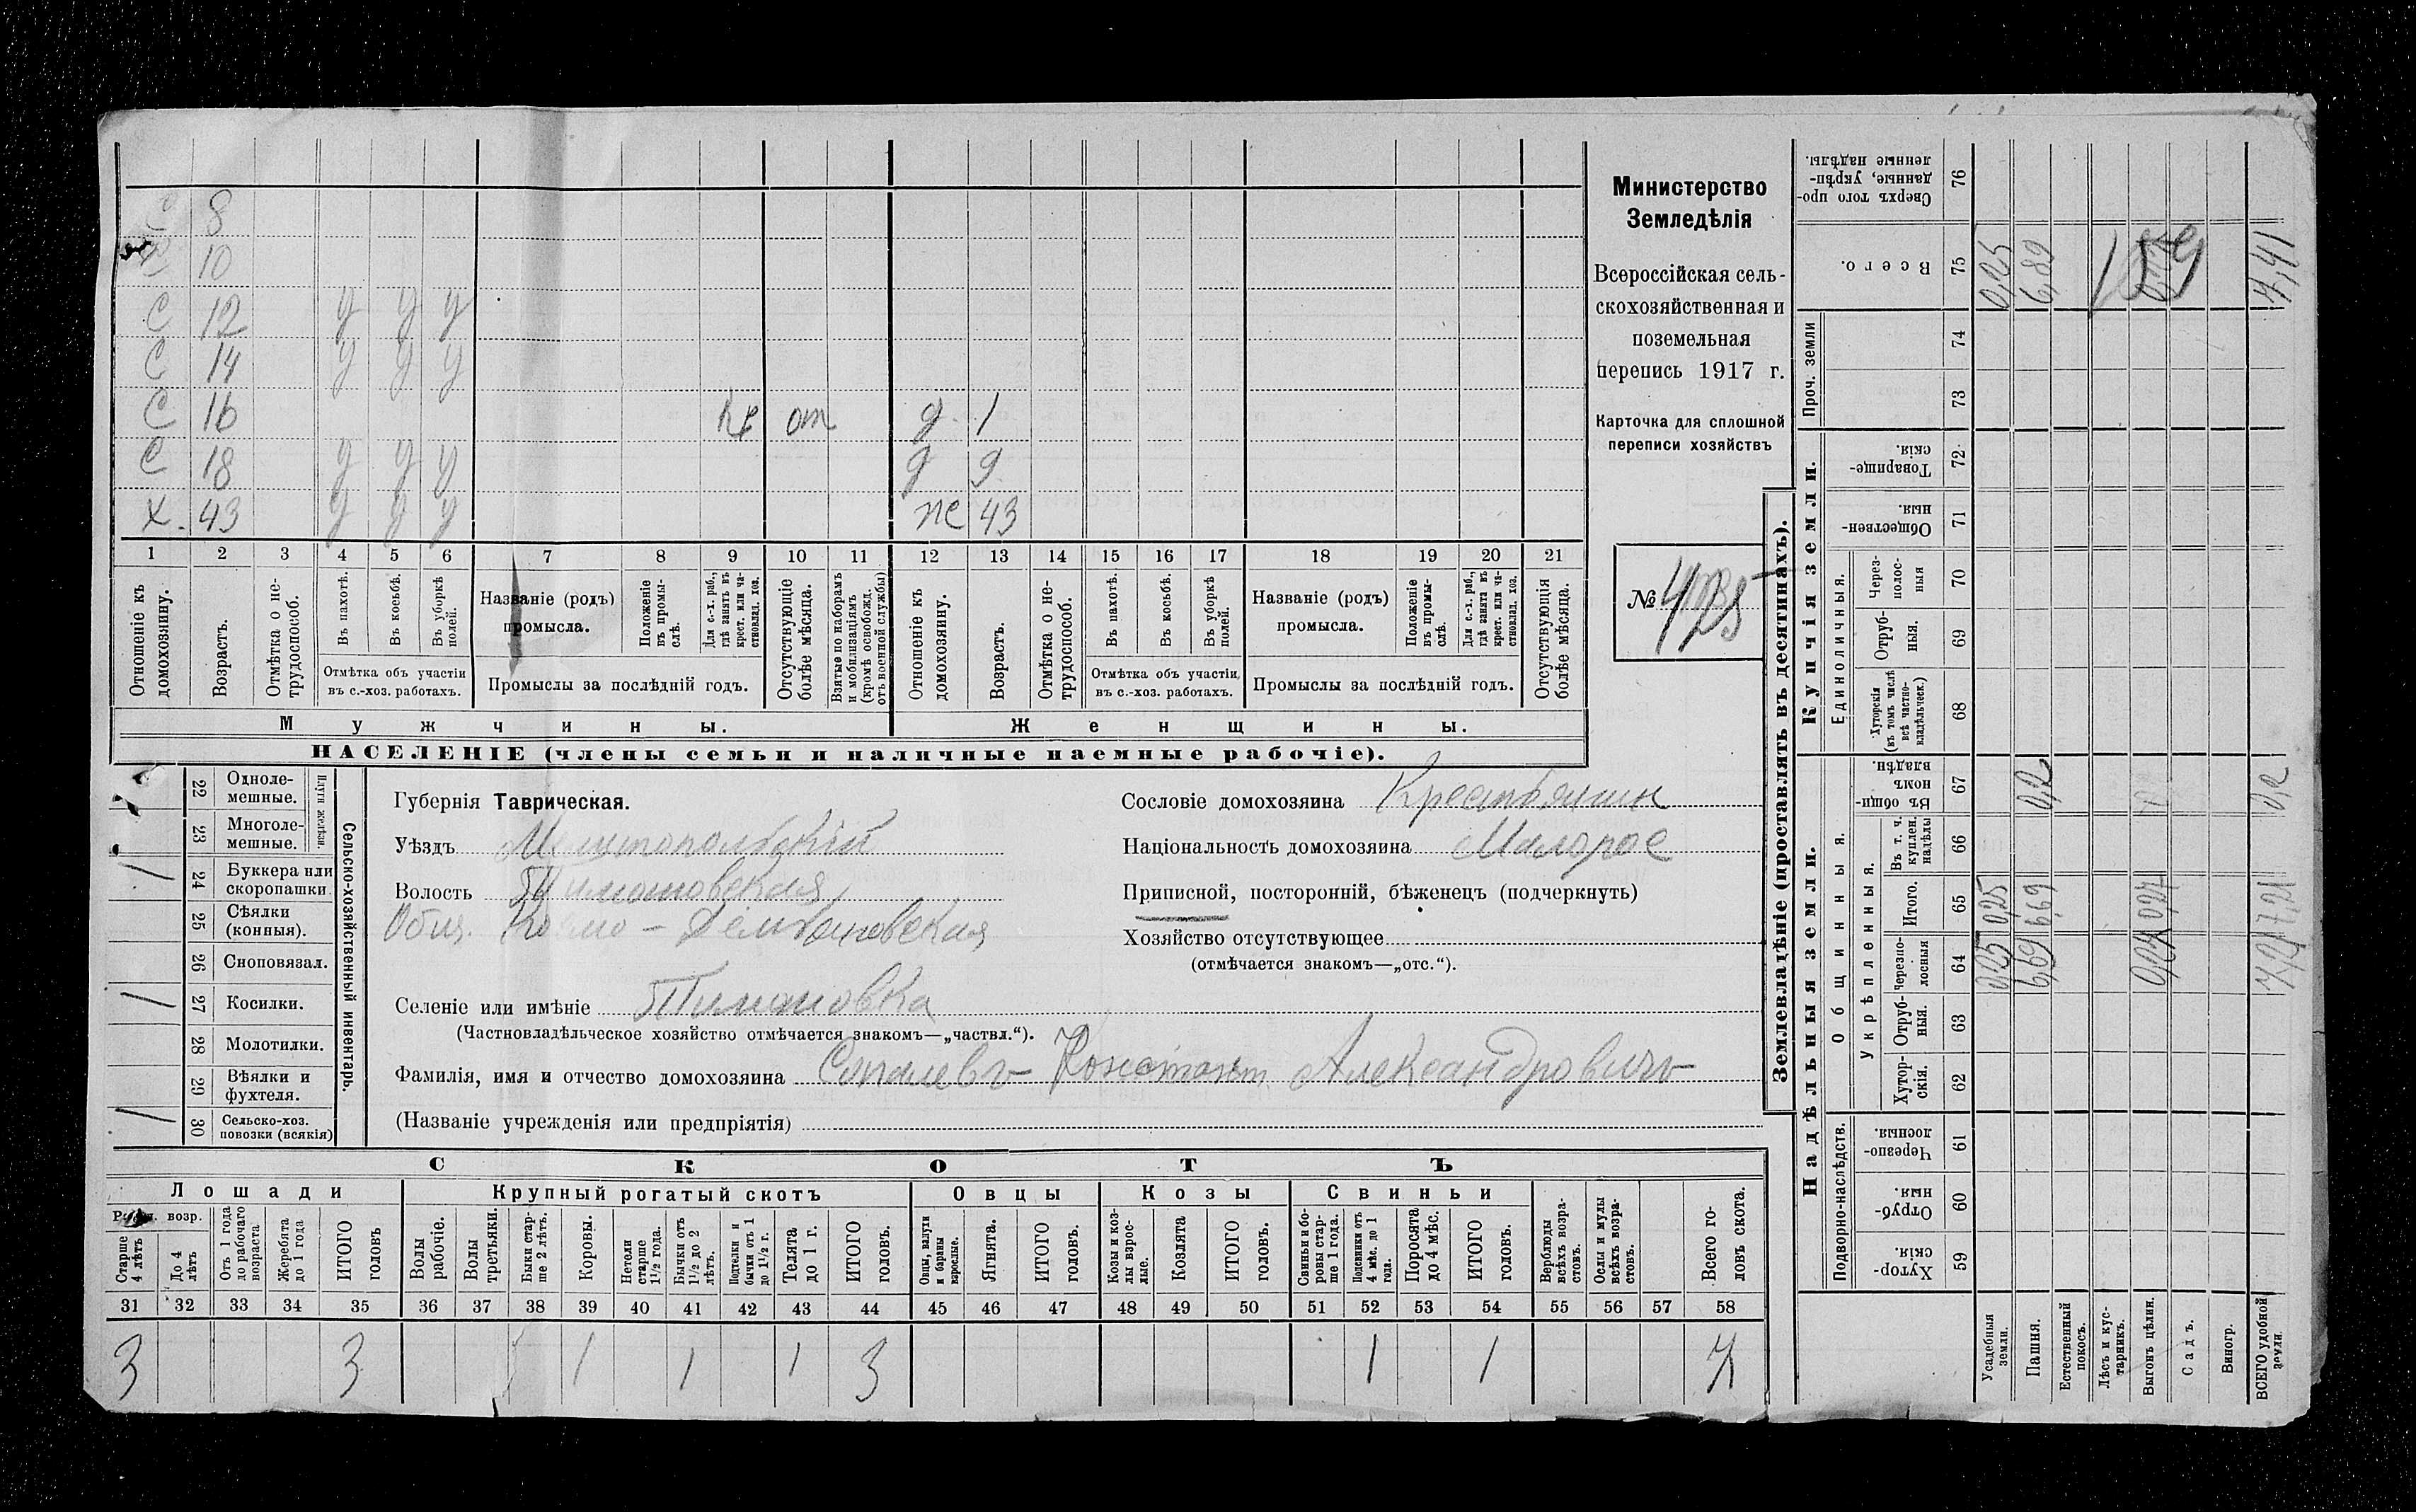 С 8
10
С 12 у у у
С 14 у у у
С 16 от д 1
С 18 у у у д 9
Х. 43 у у у же 43
1 2 3 4 5 6 7 8 9 10 11 12 13 14 15 16 17 18 19 20 21
Отношеніе къ домохозяину.
Возрастъ.
Отмѣтка о нетрудоспособ.
Въ пахотѣ.
Въ косьбѣ.
Въ уборкѣ полей.
Отмѣтка объ участіи въ с.-хоз. работахъ.
Названіе (родъ) промысла.
Положеніе въ промыслѣ.
Для с.-х. раб., гдѣ занятъ въ крест. или частновлад. хоз.
Промыслы за послѣдній годъ.
Отсутствующіе болѣе мѣсяца.
Взятые по наборамъ и мобилизаціямъ (кромѣ освобожд. отъ военной службы)
Отношеніе къ домохозяину.
Возрастъ.
Отмѣтка о нетрудоспособ.
Въ пахотѣ.
Въ косьбѣ.
Въ уборкѣ полей.
Отмѣтка объ участіи въ с.-хоз. работахъ.
Названіе (родъ) промысла.
Положеніе въ промыслѣ.
Для с.-х. раб., гдѣ занята въ крест. или частновлад. хоз.
Промыслы за послѣдній годъ.
Отсутствующія болѣе мѣсяца.
Мужчины. Женщины.
НАСЕЛЕНІЕ (члены семьи и наличные наемные рабочіе).
Министерство
Земледѣлія
Всероссійская сель-
скохозяйственная и
поземельная
перепись 1917 г.
Карточка для сплошной
переписи хозяйствъ
№
Сельско-хозяйственный инвентарь.
Плуги желѣзн.
22 Одноле-
мешные.
23 Многоле-
мешные.
/ 24 Буккера или
скоропашки.
25 Сѣялки
(конныя).
26 Сноповязал.
/ 27 Косилки.
28 Молотилки.
29 Вѣялки и
фухтеля.
/ 30 Сельско-хоз.
повозки (всякія)
Губернія Таврическая.
Уѣздъ Мелитопольскій
Волость Тимашовская
Общ.
Селеніе или имѣніе Тимашовка
(Частновладѣльческое хозяйство отмѣчается знакомъ—„частвл.“).
Фамилія, имя и отчество домохозяина Констант
Александровичъ
(Названіе учрежденія или предпріятія)
Сословіе домохозяина Крестьянин
Національность домохозяина Малорос
Приписной, посторонній, бѣженецъ (подчеркнуть)
Хозяйство отсутствующее
(отмѣчается знакомъ—„отс.“).
СКОТЪ
Лошади Крупный рогатый скотъ Овцы Козы Свиньи
Старше 4 лѣтъ
До 4 лѣтъ
Отъ 1 года до рабочаго возраста
Жеребята до 1 года
ИТОГО головъ
Волы рабочіе.
Волы третьяки.
Быки старше 2 лѣтъ.
Коровы.
Нетели старше 1½ года.
Бычки отъ 1½ до 2 лѣтъ.
Подтелки и бычки отъ 1 до 1½ г.
Телята до 1 г.
ИТОГО головъ.
Овцы, валухи и бараны взрослые.
Ягнята.
ИТОГО головъ.
Козы и козлы взрослые.
Козлята
ИТОГО головъ.
Свиньи и боровы старше 1 года.
Подсвинки отъ 4 мѣс. до 1 года.
Поросята до 4 мѣс.
ИТОГО головъ.
Верблюды всѣхъ возрастовъ.
Ослы и мулы всѣхъ возрастовъ.
Всего головъ скота.
31 32 33 34 35 36 37 38 39 40 41 42 43 44 45 46 47 48 49 50 51 52 53 54 55 56 57 58
3 3 1 1 1 3 1 1 7
Землевладѣніе (проставлять въ десятинахъ).
Надѣльныя земли. Купчія земли.
Подворно-наслѣдств.
Общинныя.
Укрѣпленныя.
Единоличныя.
Проч. земли
59 Хутор-
скія.
60 Отруб-
ныя.
61 Черезпо-
лосныя.
62 Хутор-
скія.
63 Отруб-
ныя.
64 Черезпо-
лосныя
65 Итого.
66 Въ т. ч.
куплен.
надѣлы
67 Въ общи-
номъ
владѣн.
68 Хуторскія
(въ томъ числѣ
всѣ частно-
владѣльческ.)
69 Отруб-
ныя.
70 Через-
полос-
ныя
71 Обществен-
ныя.
72 Товарище-
скія.
73
74
75 Всего.
76 Сверхъ того про-
данные, укрѣп-
ленные надѣлы.
Усадебныя земли. 0,25 0,25 0,25
Пашня. 6,69 6,69 0,2 6,89
Естественный покосъ.
Лѣсъ и кустарникъ.
Выгонъ цѣлин. 0,27 0,27
Садъ.
Виногр.
ВСЕГО удобной земли. 7,21 7,21 0,2 7,41